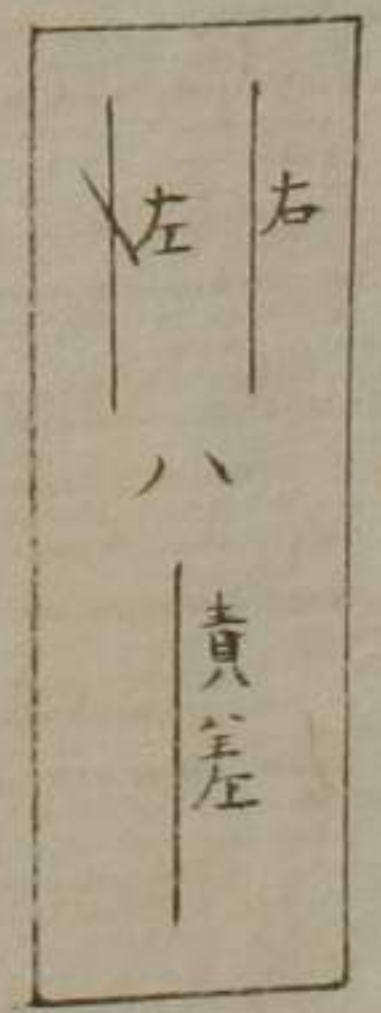 右
左
八
責差